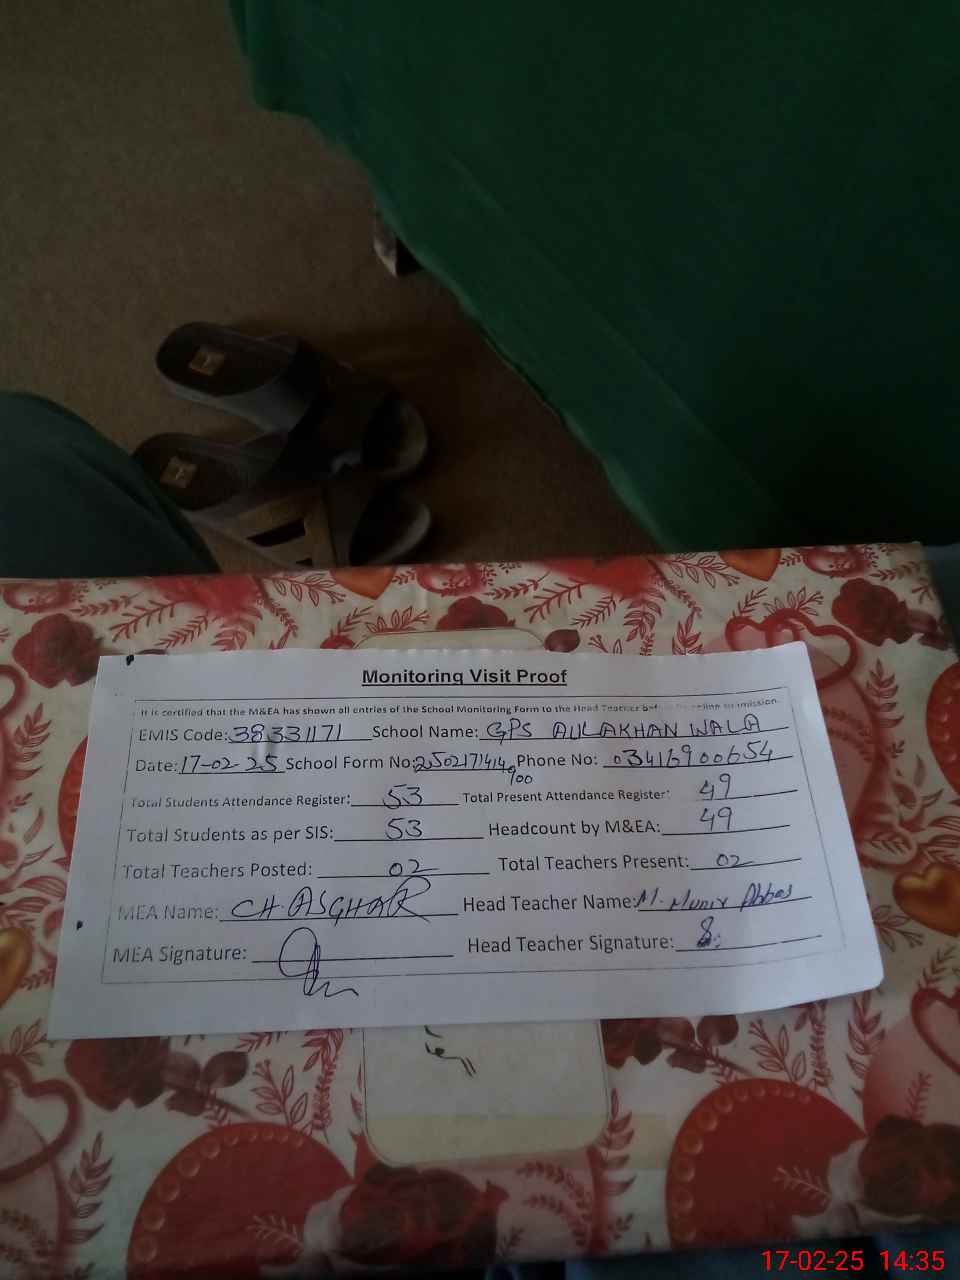 Monitoring Visit Proof
It is certified that the M&EA has shown all entries of the School Monitoring Form to the Head Teacher before online submission.
EMIS Code: 38331171 School Name: GPS AULAKHAN WALA
Date: 17-02-25 School Form No: 2502171414900 Phone No: 03416900654
Total Students Attendance Register: 53 Total Present Attendance Register: 49
Total Students as per SIS: 53 Headcount by M&EA: 49
Total Teachers Posted: 02 Total Teachers Present: 02
MEA Name: CH. ASGHAR Head Teacher Name: M. Munir Abbas
MEA Signature: Head Teacher Signature:
17-02-25 14:35